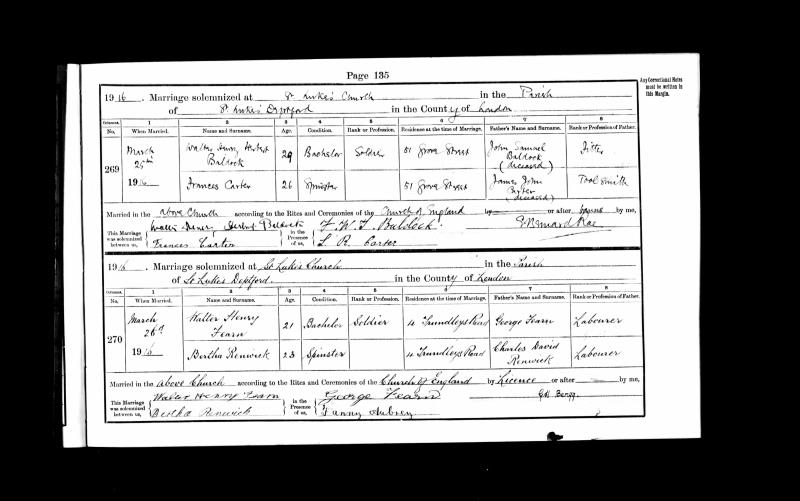 Page 135
Any Correctional Notes
must be written in
this Margin.
1916. Marriage solemnized at St Luke's Church in the Parish
of St Luke's Deptford in the County of London
Columns. 1 2 3 4 5 6 7 8
No. When Married. Name and Surname. Age. Condition. Rank or Profession. Residence at the time of Marriage. Father's Name and Surname. Rank or Profession of Father.
269 March 25th 1916 Walter Henry Herbert Baldock 29 Bachelor Soldier 51 Grove Street John Samuel Baldock (deceased) Fitter
Frances Carter 26 Spinster 51 Grove Street James John Carter (deceased) Tool Smith
Married in the above Church according to the Rites and Ceremonies of the Church of England by or after banns by me,
This Marriage was solemnized between us, Walter Henry Herbert Baldock in the Presence of us, F. W. J. Baldock
Frances Carter L. R. Carter
1916. Marriage solemnized at St Luke's Church in the Parish
of St Lukes Deptford. in the County of London
Columns. 1 2 3 4 5 6 7 8
No. When Married. Name and Surname. Age. Condition. Rank or Profession. Residence at the time of Marriage. Father's Name and Surname. Rank or Profession of Father.
270 March 26th 1916 Walter Henry Fearn 21 Bachelor Soldier 4 Trundleys Road George Fearn Labourer
Bertha Renwick 23 Spinster 4 Trundleys Road Charles David Renwick Labourer
Married in the above Church according to the Rites and Ceremonies of the Church of England by Licence or after by me,
This Marriage was solemnized between us, Walter Henry Fearn in the Presence of us, George Fearn
Bertha Renwick Fanny Aubrey